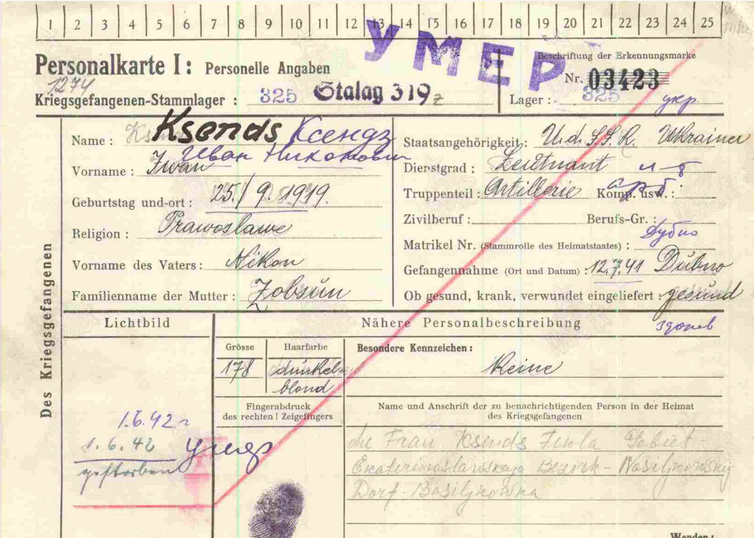 1 2 3 4 5 6 7 8 9 10 11 12 13 14 15 16 17 18 19 20 21 22 23 24 25
УМЕР
Personalkarte I: Personelle Angaben
1274
Beschriftung der Erkennungsmarke
Nr. 03423
Kriegsgefangenen-Stammlager : 325 Stalag 319 z
Lager : 325 укр
Des Kriegsgefangenen
Name : Ksends Ксендз
Иван Никонович
Vorname : Iwan
Geburtstag und-ort : 25./9.1919.
Religion : Prawoslawe
Vorname des Vaters : Nikon
Familienname der Mutter :
Staatsangehörigkeit : U.d.S.S.R. Ukrainer
Dienstgrad : Leitnant л-т
Truppenteil : Artillerie Komp. usw. :
Zivilberuf : Berufs-Gr. :
Matrikel Nr. (Stammrolle des Heimatstaates) : Дубно
Gefangennahme (Ort und Datum) : 12.7.41 Dubno
Ob gesund, krank, verwundet eingeliefert : gesund
здоров
Lichtbild
1.6.42 г
1.6.42 умер
gestorben
Nähere Personalbeschreibung
Grösse
178
Haarfarbe
dunkel-
blond
Besondere Kennzeichen :
Keine
Fingerabdruck
des rechten ! Zeigefingers
Name und Anschrift der zu benachrichtigenden Person in der Heimat
des Kriegsgefangenen
die Frau Ksends Gebiet
Ekaterinoslawskaja Bezirk - Wasiljkowsky
Dorf - Wasiljkowka
Wenden :